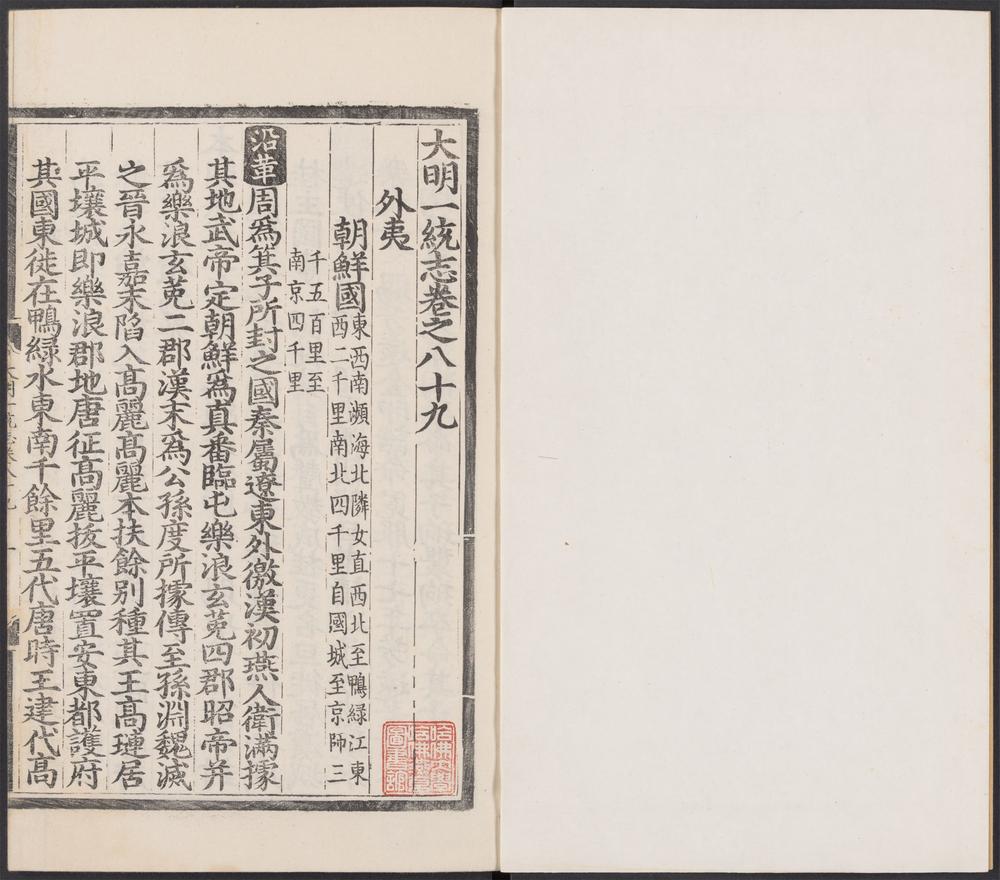 大明一統志卷之八十九
外夷
朝鮮國東西南瀕海北隣女直西北至鴨緑江東
西二千里南北四千里自國城至京師三
千五百里至
南京四千里
沿革周爲箕子所封之國秦屬遼東外徼漢初燕人衛滿據
其地武帝定朝鮮爲真番臨屯樂浪玄莵四郡昭帝并
爲樂浪玄莵二郡漢末爲公孫度所據傳至孫淵魏滅
之晉永嘉末陷入髙麗髙麗本扶餘别種其王髙璉居
平壤城即樂浪郡地唐征髙麗拔平壤置安東都護府
其國東徙在鴨緑水東南千餘里五代唐時王建代髙
哈佛大學
哈佛燕京
圖書館